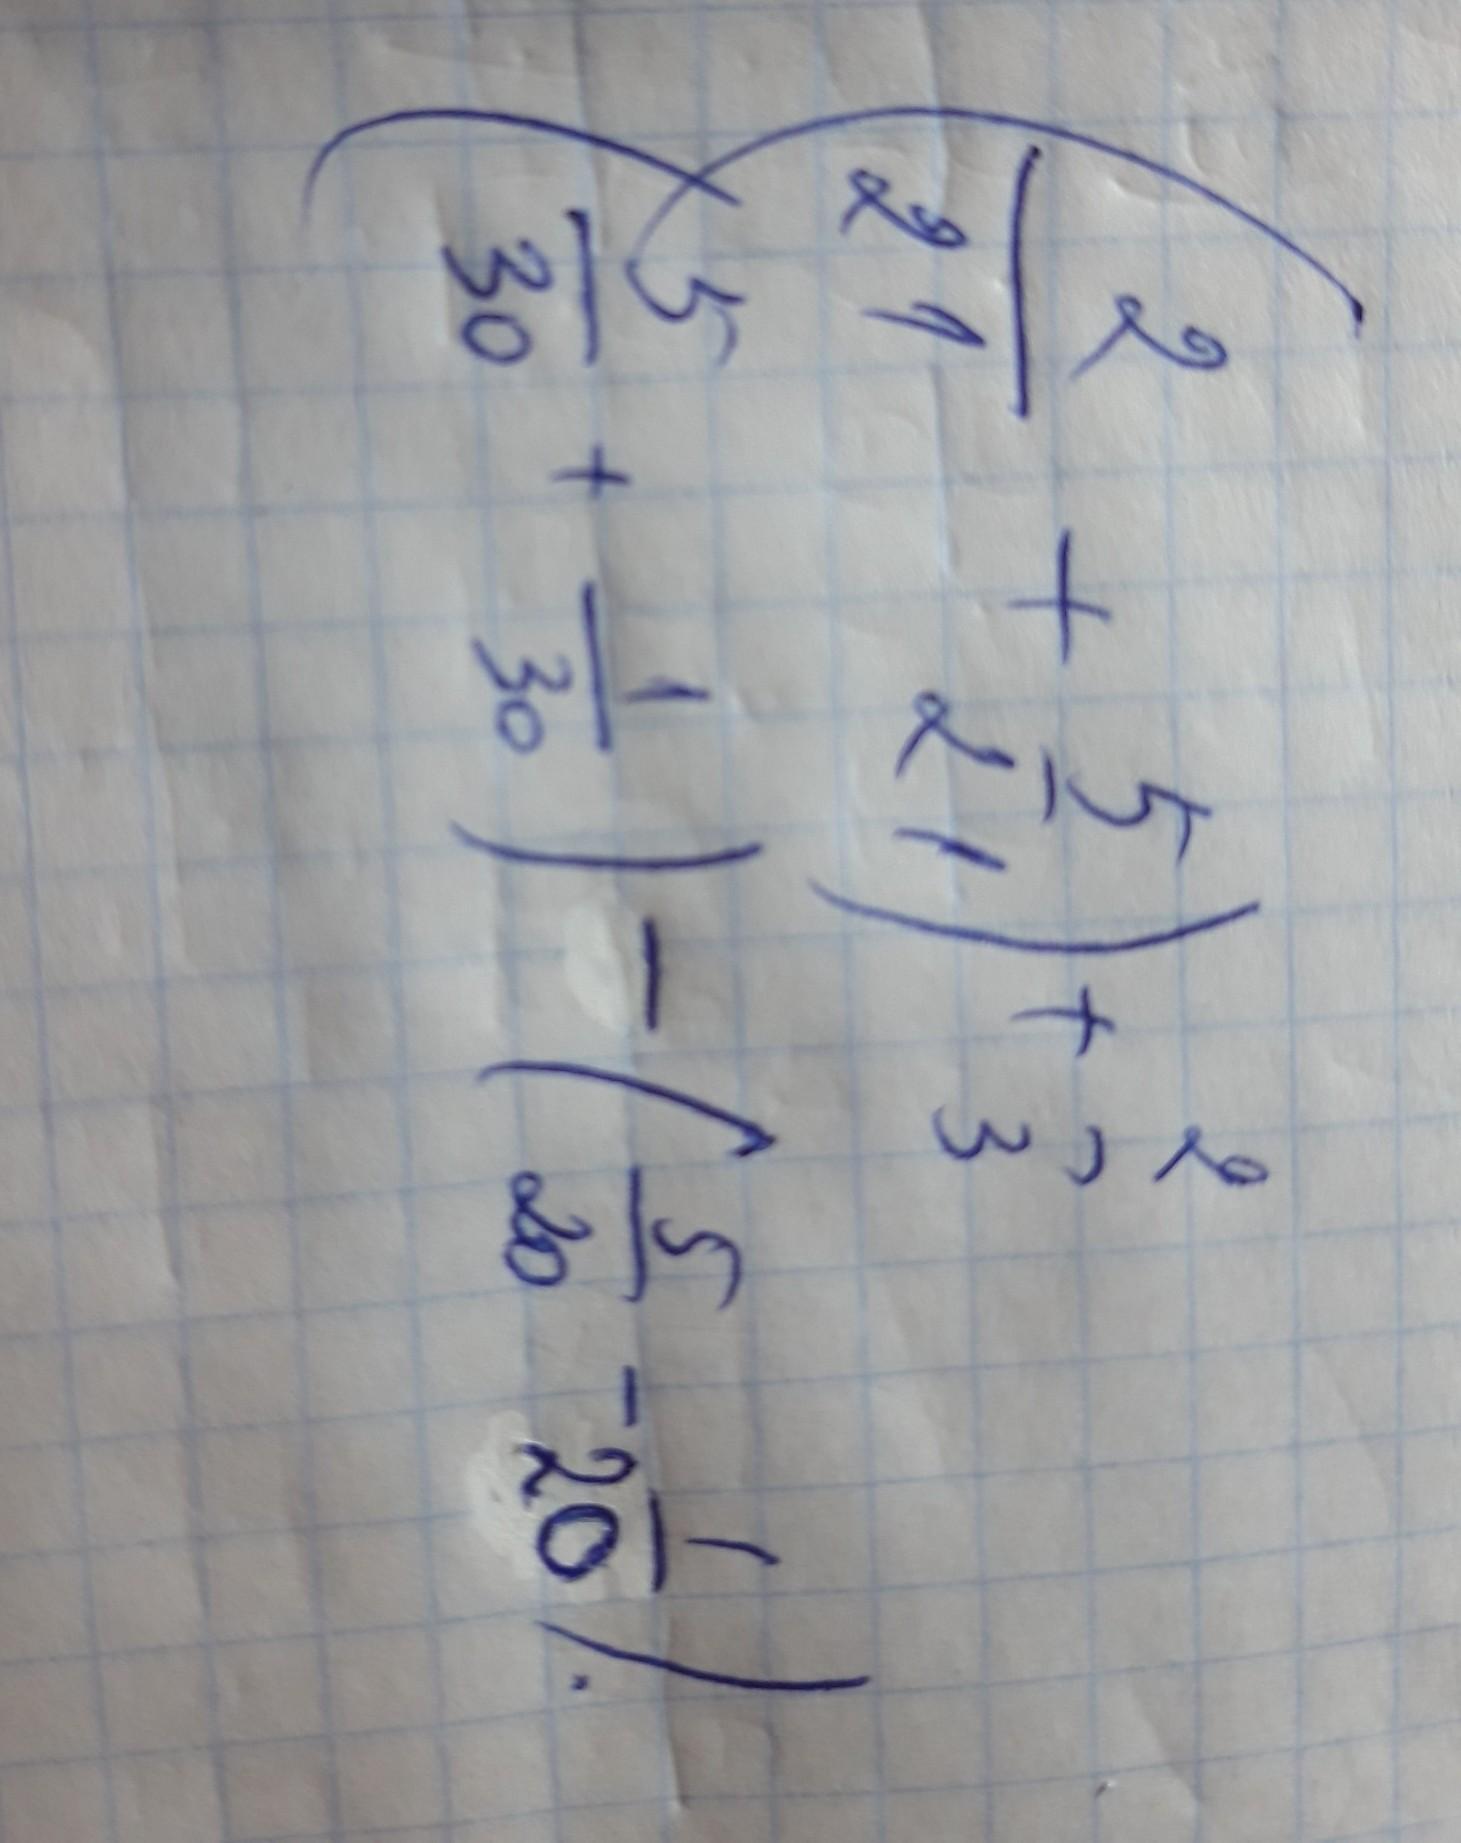 (2/21 + 5/21) + 2/3
(5/30 + 1/30) - (5/20 - 1/20).